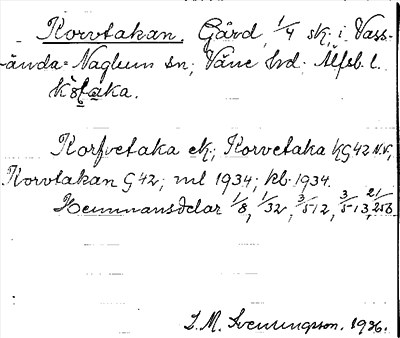 Korvtakan. Gård, 1/4 sk. i Vass-
ända-Naglum sn; Väne hd. Älfsb. l.
kòftaka.
Korfvetaka ek; Korvetaka kG42 N.V.;
Korvtakan G42; ml 1934; kb. 1934.
Hemmansdelar 1/8, 1/32, 3/512, 3/513, 21/256
L. M. Svenungsson. 1936.